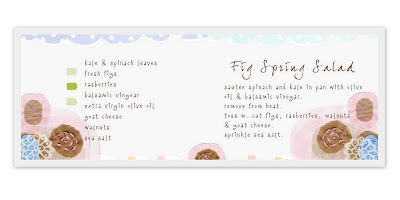 kale & spinach leaves
fresh figs
rasberries
balsamic vingear
extra virgin olive oil
goat cheese
walnuts
sea salt
Fig Spring Salad
sautee spinach and kale in pan with olive
oil & balsamic vinegar.
remove from heat.
toss w. cut figs, rasberries, walnuts
& goat cheese.
sprinkle sea salt.